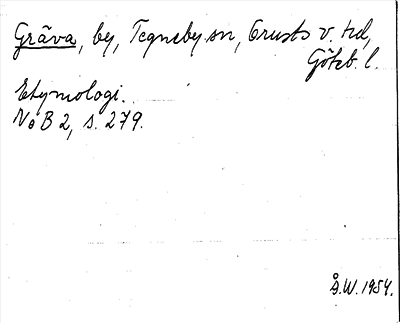 Gräva, by, Tegneby sn, Orusts v. hd,
Göteb. l.
Etymologi.
NoB 2, s. 279.
Å.W. 1954.